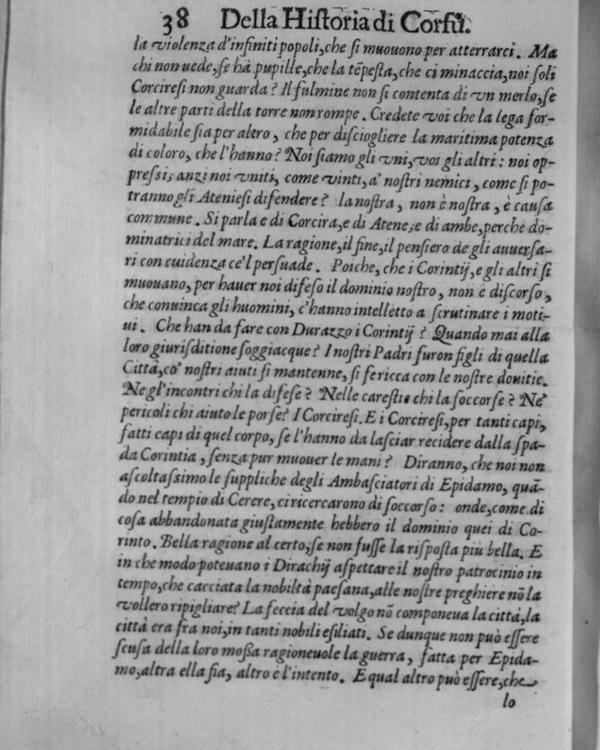 38 Della Hiſtoria di Corfù.
la violenza d'infiniti popoli, che ſi muouono per atterrarci. Ma
chi non uede, ſe hà pupille, che la tẽpeſta, che ci minaccia, noi ſoli
Corcireſi non guarda? Il fulmine non ſi contenta di vn merlo, ſe
le altre parti della torre non rompe. Credete voi che la lega for-
midabile ſia per altro, che per diſciogliere la maritima potenza
di coloro, che l'hanno? Noi ſiamo gli vni, voi gli altri: noi op-
preſsi, anzi noi vniti, come vinti, a' noſtri nemici, come ſi po-
tranno gli Atenieſi difendere? la noſtra, non è noſtra, è cauſa
commune. Si parla e di Corcira, e di Atene, e di ambe, perche do-
minatrici del mare. La ragione, il fine, il penſiero de gli auuerſa-
ri con euidenza ce'l perſuade. Poiche, che i Corintij, e gli altri ſi
muouano, per hauer noi difeſo il dominio noſtro, non è diſcorſo,
che conuinca gli huomini, c'hanno intelletto a ſcrutinare i moti-
ui. Che han da fare con Durazzo i Corintij? Quando mai alla
loro giuriſditione ſoggiacque? I noſtri Padri furon figli di quella
Città, co' noſtri aiuti ſi mantenne, ſi fe ricca con le noſtre douitie.
Ne gl'incontri chi la difeſe? Nelle careſtie chi la ſoccorſe? Ne'
pericoli chi aiuto le porſe? I Corcireſi. E i Corcireſi, per tanti capi,
fatti capi di quel corpo, ſe l'hanno da laſciar recidere dalla ſpa-
da Corintia, ſenza pur muouer le mani? Diranno, che noi non
aſcoltaſsimo le ſuppliche degli Ambaſciatori di Epidamo, quã-
do nel tempio di Cerere, ci ricercarono di ſoccorſo: onde, come di
coſa abbandonata giuſtamente hebbero il dominio quei di Co-
rinto. Bella ragione al certo, ſe non fuſſe la riſpoſta più bella. E
in che modo poteuano i Dirachij aſpettare il noſtro patrocinio in
tempo, che cacciata la nobiltà paeſana, alle noſtre preghiere nõ la
vollero ripigliare? La feccia del volgo nõ componeua la città, la
città era fra noi, in tanti nobili eſiliati. Se dunque non può eſſere
ſcuſa della loro moſſa ragioneuole la guerra, fatta per Epida-
mo, altra ella ſia, altro è l'intento. E qual altro può eſſere, che
lo